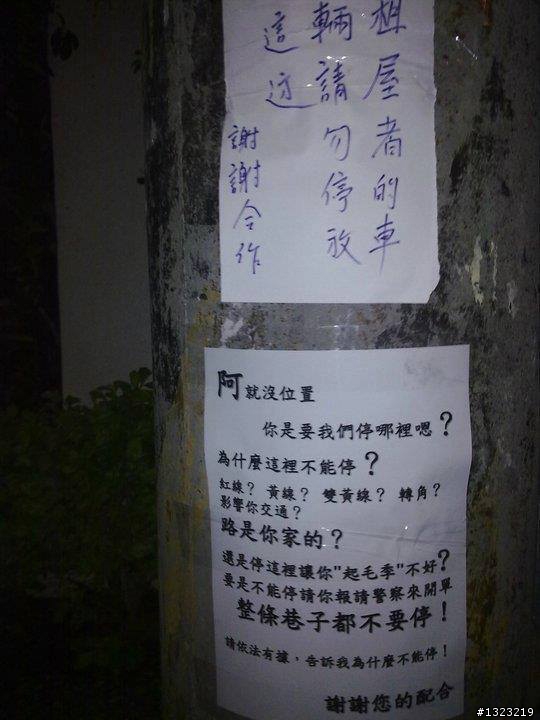 租屋者的車
輛請勿停放
這边
謝謝合作
阿就沒位置
你是要我們停哪裡嗯？
為什麼這裡不能停？
紅線？ 黃線？ 雙黃線？ 轉角？
影響你交通？
路是你家的？
還是停這裡讓你"起毛季"不好？
要是不能停請你報請警察來開單
整條巷子都不要停！
請依法有據，告訴我為什麼不能停！
謝謝您的配合
#1323219